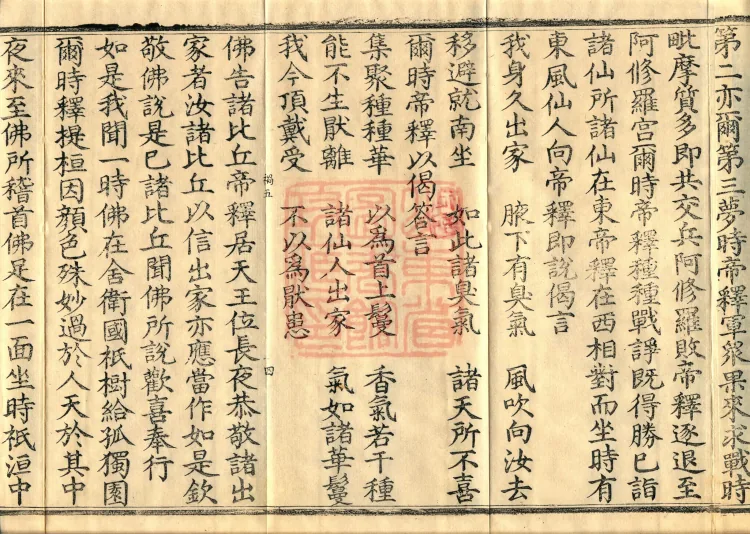 第二亦爾第三夢時帝釋軍衆果來求戰時
毗摩質多即共交兵阿修羅敗帝釋逐退至
阿修羅宫爾時帝釋種種戰諍既得勝已詣
諸仙所諸仙在東帝釋在西相對而坐時有
東風仙人向帝釋即說偈言
我身久出家 腋下有臭氣 風吹向汝去
移避就南坐 如此諸臭氣 諸天所不喜
爾時帝釋以偈答言
集聚種種華 以為首上鬘 香氣若干種
能不生厭離 諸仙人出家 氣如諸華鬘
我今頂戴受 不以為厭患
禍五 四
佛告諸比丘帝釋居天王位長夜恭敬諸出
家者汝諸比丘以信出家亦應當作如是欽
敬佛說是已諸比丘聞佛所說歡喜奉行
如是我聞一時佛在舍衛國祇樹給孤獨園
爾時釋提桓因顏色殊妙過於人天於其中
夜來至佛所稽首佛足在一面坐時祇洹中